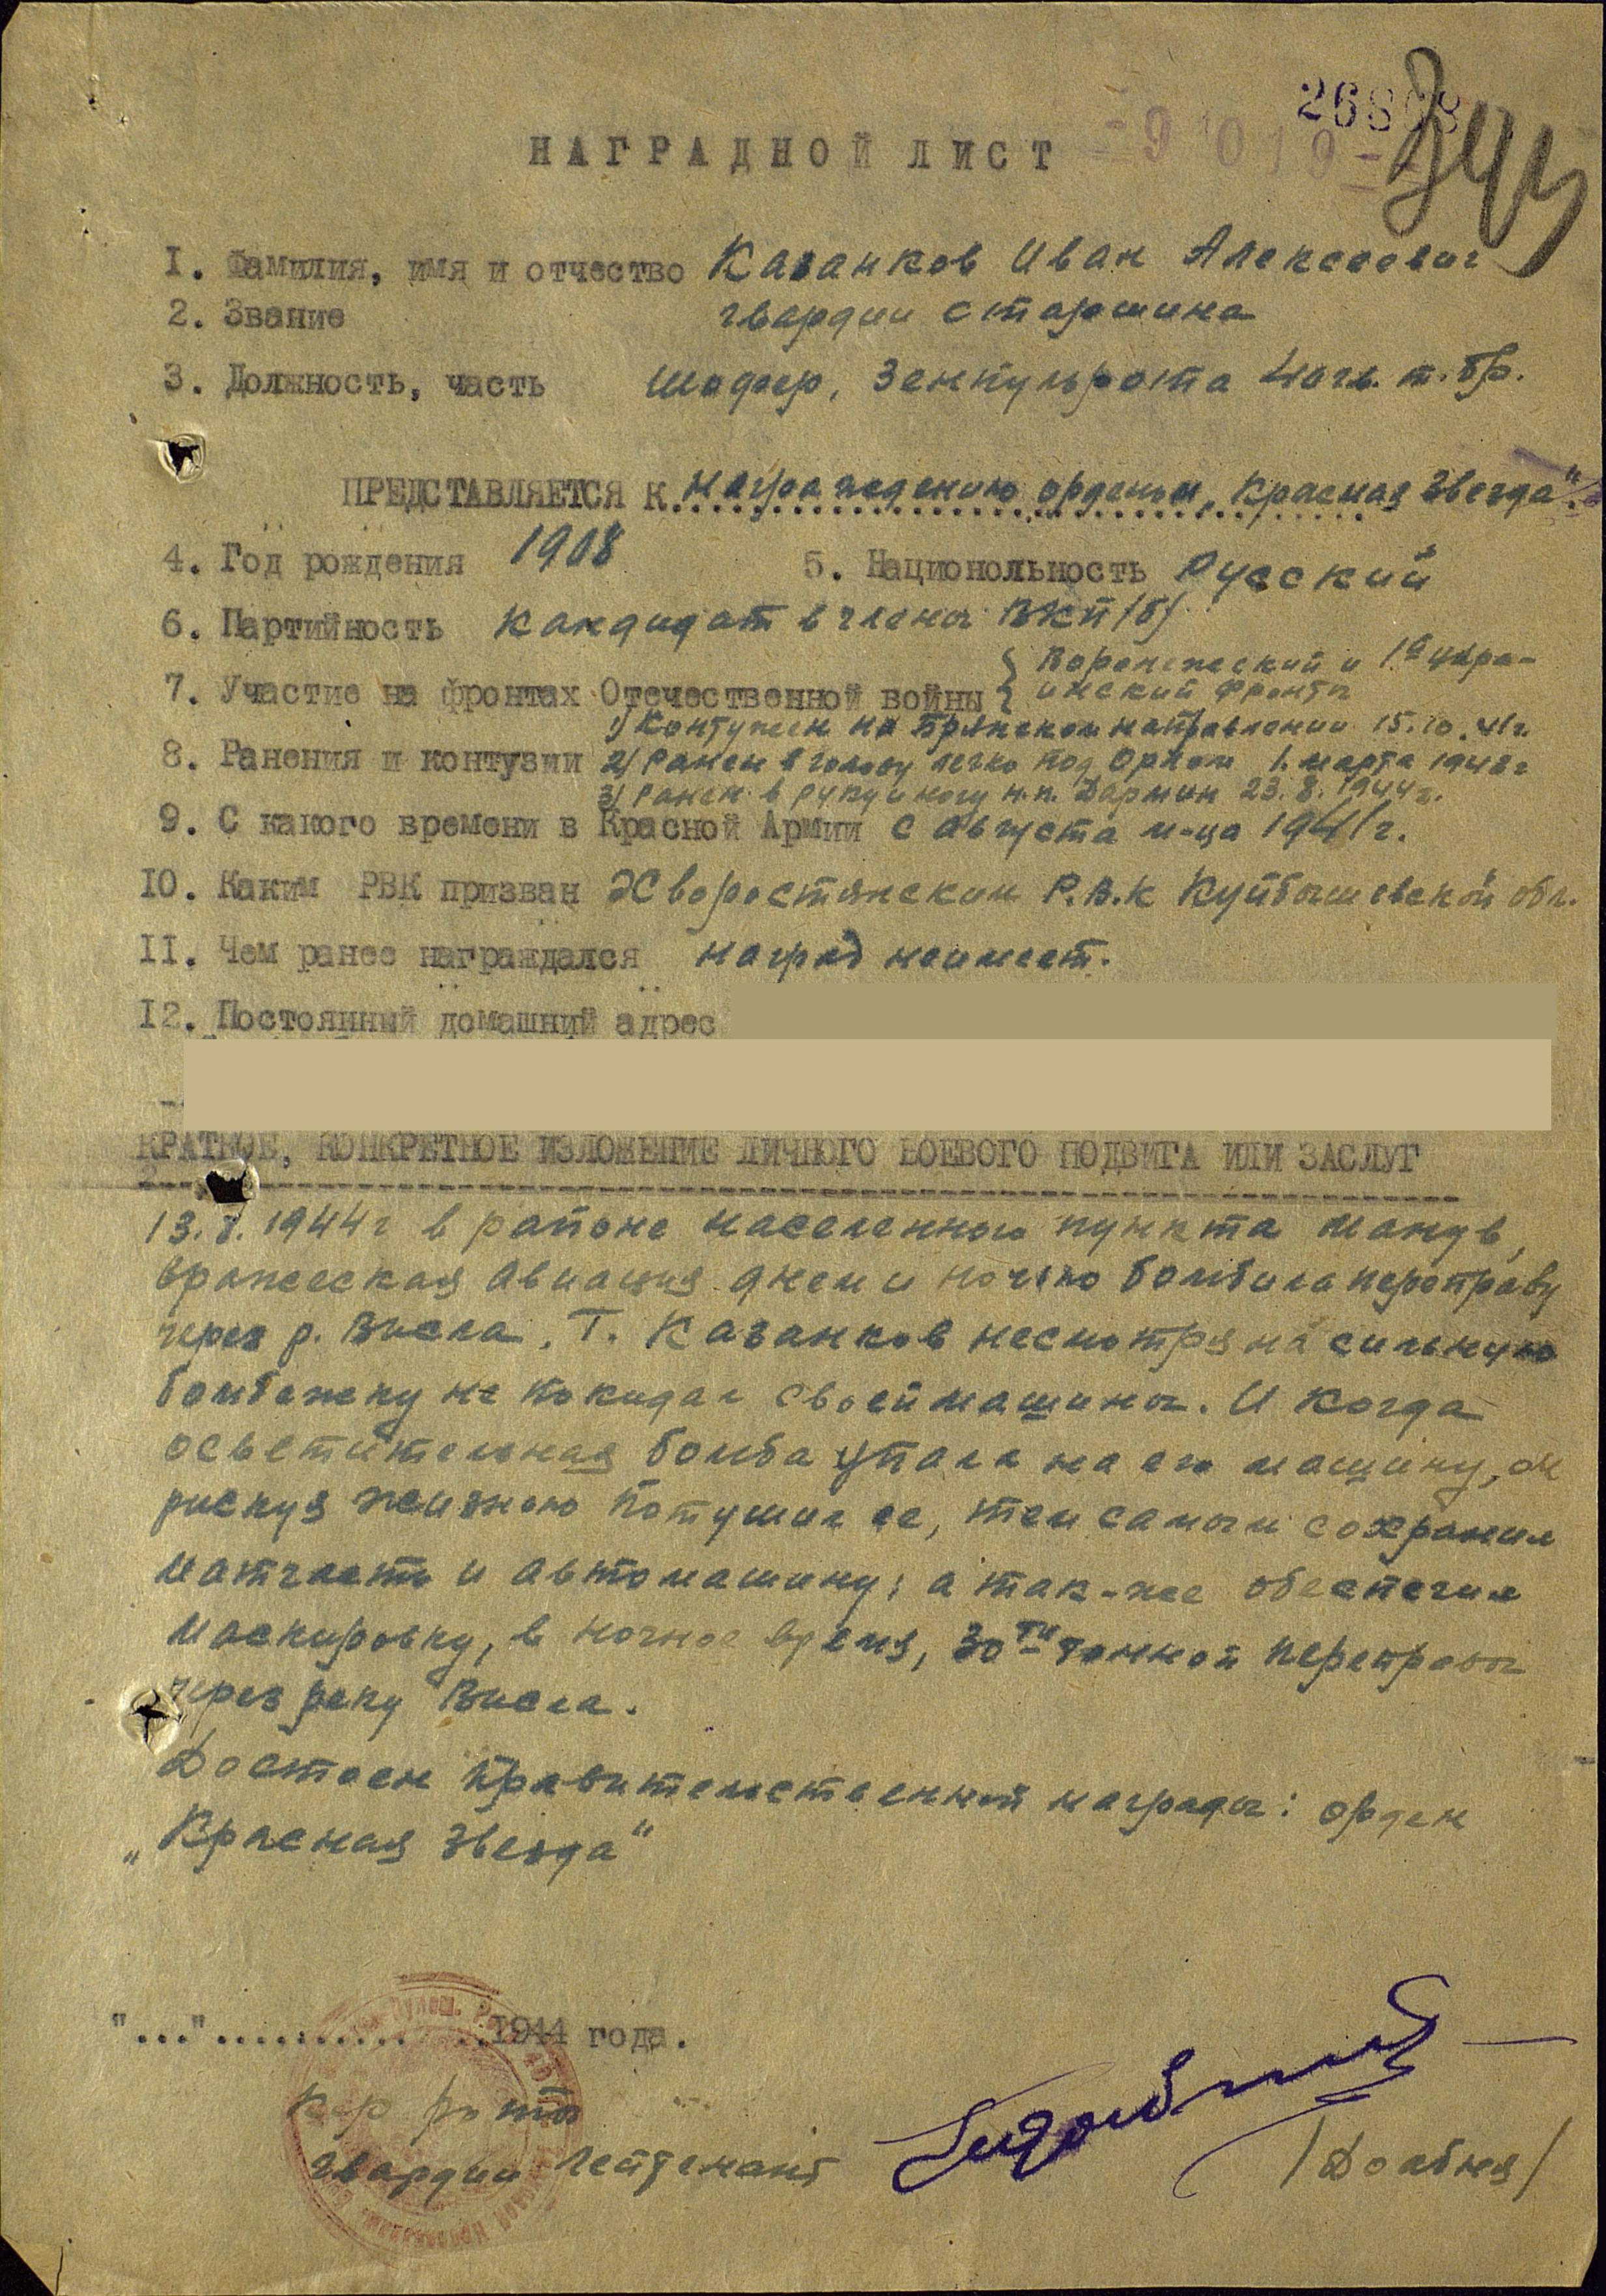 НАГРАДНОЙ ЛИСТ
1. Фамилия, имя и отчество Казанков Иван Алексеевич
2. Звание гвардии старшина
3. Должность, часть Шофер, Зенпульрота 4 огв. т. бр.
ПРЕДСТАВЛЯЕТСЯ К награждению орденом „Красная Звезда".
4. Год рождения 1908 5. Национольность Русский
6. Партийность Кандидат в члены ВКП/б/
Воронежский и 1й Укра-
7. Участие на фронтах Отечественной войны инский фронты
1) Контужен на Брянском направлении 15.10.41г.
8. Ранения и контузии 2) Ранен в голову легко под Орлом 1. марта 1943г
3) Ранен в руку и ногу н.п. 23.8.1944г.
9. С какого времени в Красной Армии с августа м-ца 1941г.
10. Каким РВК призван Хворостянским Р.В.К Куйбышевской обл.
11. Чем ранее награждался наград неимеет.
12. Постоянный домашний адрес
КРАТКОЕ, КОНКРЕТНОЕ ИЗЛОЖЕНИЕ ЛИЧНОГО БОЕВОГО ПОДВИГА ИЛИ ЗАСЛУГ
13.8.1944г в районе населенного пункта
вражеская авиация днем и ночью бомбила переправу
через р. Висла. Т. Казанков несмотря на сильную
бомбежку не покидал своей машины. И когда
осветительная бомба упала на его машину, он
рискуя жизнью потушил ее, тем самым сохранил
матчасть и автомашину; а так-же обеспечил
маскировку, в ночное время, 30ти тонной переправы
через реку Висла.
Достоен правительственной награды: орден
„Красная Звезда"
"..."..............1944 года.
Кдр роты
гвардии лейтенант /Долбня/